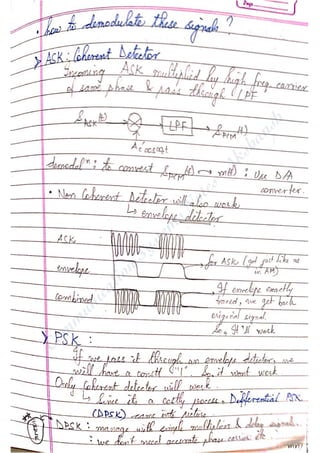 • how to demodulate these signals?
> ASK: Coherent Detector
Incoming ASK multiplied by high freq. carrier
of same phase & pass through LPF
S_ASK(t) → ⊗ → LPF → S_PCM(t)
A_c cos ω_c t
demodulⁿ: to convert S_PCM(t) → m(t) : Use D/A
converter.
• Non Coherent Detector will also work
↳ envelope detector
ASK
for ASK (got just like as
in AM)
envelope
If envelope exactly
traced, we get back
original signal
So, It'll work
combined
> PSK :
If we pass it through an envelope detector, we
will have a constt "1" So, it wont work
Only Coherent detector will work.
↳ Since its a costly process, Differential PSK
(DPSK) came into picture
DPSK : manage with simple multipliers & delay signals.
: we don't need accurate phase carrier etc.